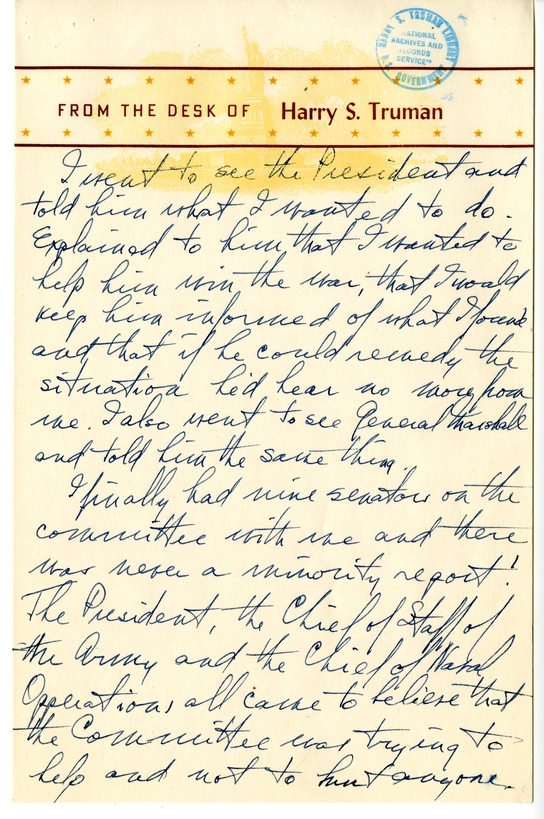 HARRY S. TRUMAN LIBRARY
NATIONAL
ARCHIVES AND
RECORDS
SERVICE
U.S. GOVERNMENT
FROM THE DESK OF Harry S. Truman
I went to see the President and
told him what I wanted to do.
Explained to him that I wanted to
help him win the war, that I would
keep him informed of what I found
and that if he could remedy the
situation he'd hear no more from
me. I also went to see General Marshall
and told him the same thing.
I finally had nine senators on the
committee with me and there
was never a minority report!
The President, the Chief of Staff of
the Army and the Chief of Naval
Operations all came to believe that
the Committee was trying to
help and not to hurt anyone.